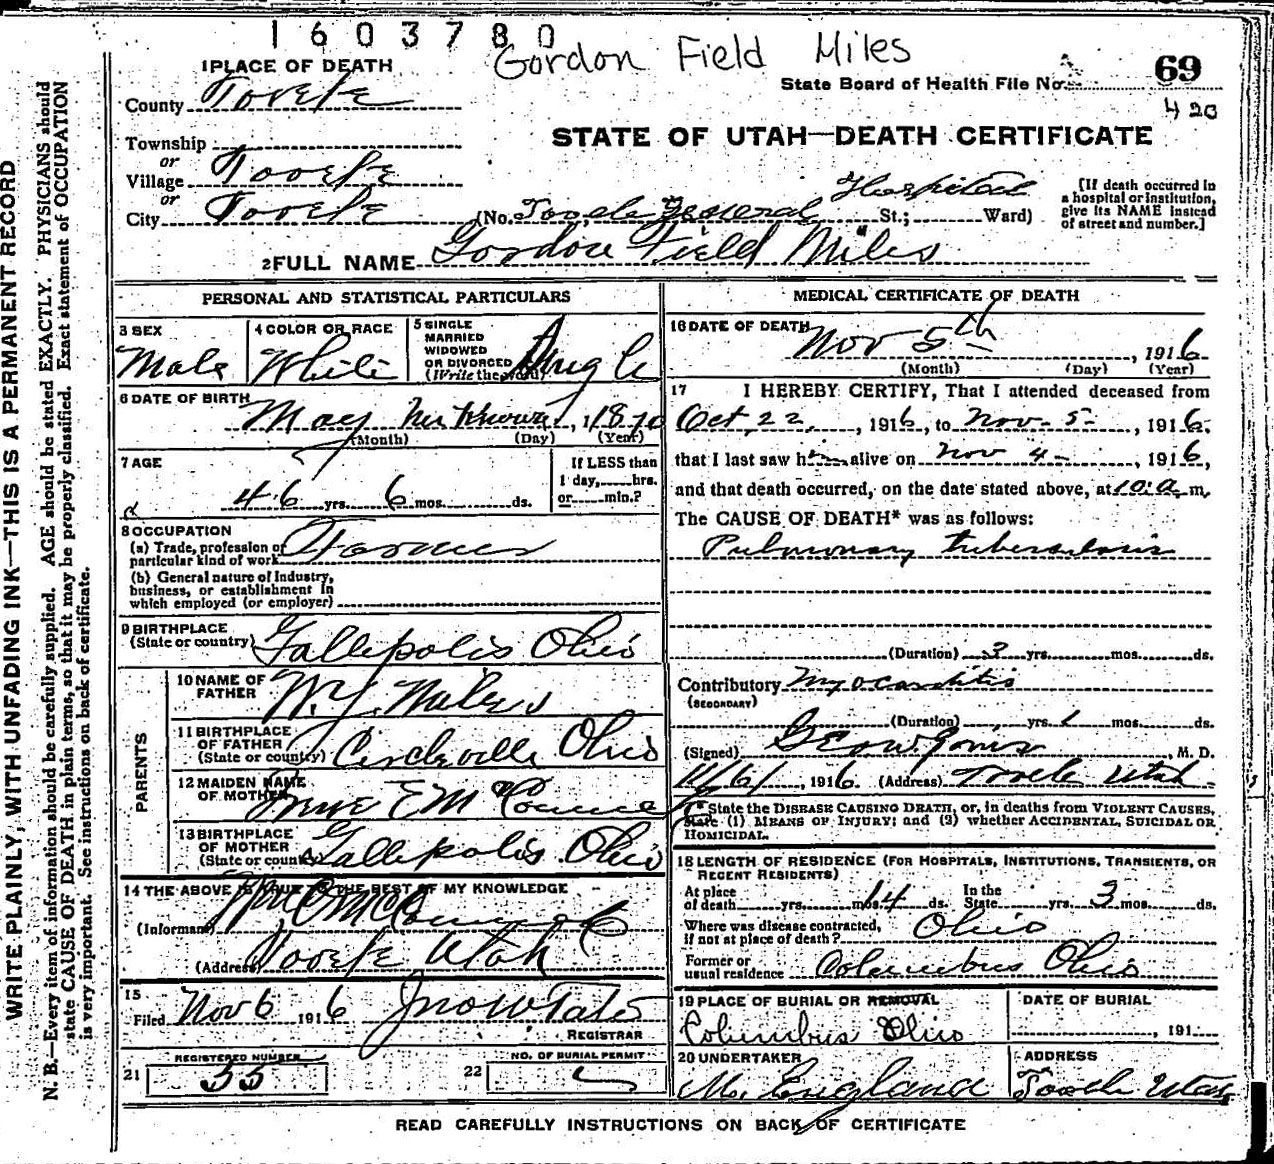 1603780
Gordon Field Miles
1 PLACE OF DEATH
State Board of Health File No. 69
420
County Tooele
STATE OF UTAH—DEATH CERTIFICATE
Township
or
Village Tooele
or
City Tooele (No. Tooele General Hospital St.; Ward)
[If death occurred in
a hospital or institution,
give its NAME instead
of street and number.]
2 FULL NAME Gordon Field Miles
PERSONAL AND STATISTICAL PARTICULARS
3 SEX
Male
4 COLOR OR RACE
White
5 SINGLE
MARRIED
WIDOWED
OR DIVORCED
(Write the word)
Single
6 DATE OF BIRTH
May Not Known, 1870
(Month) (Day) (Year)
7 AGE
46 yrs. 6 mos. ds.
If LESS than
1 day, hrs.
or min.?
8 OCCUPATION
(a) Trade, profession or
particular kind of work Farmer
(b) General nature of Industry,
business, or establishment in
which employed (or employer)
9 BIRTHPLACE
(State or country) Gallipolis Ohio
PARENTS
10 NAME OF
FATHER Miles
11 BIRTHPLACE
OF FATHER
(State or country) Circleville Ohio
12 MAIDEN NAME
OF MOTHER
13 BIRTHPLACE
OF MOTHER
(State or country) Gallipolis Ohio
14 THE ABOVE IS TRUE TO THE BEST OF MY KNOWLEDGE
(Informant)
(Address) Tooele Utah
15
Filed Nov 6 1916
REGISTRAR
REGISTERED NUMBER
21 55
NO. OF BURIAL PERMIT
22
MEDICAL CERTIFICATE OF DEATH
16 DATE OF DEATH
Nov 5th, 1916
(Month) (Day) (Year)
17 I HEREBY CERTIFY, That I attended deceased from
Oct 22, 1916, to Nov-5-, 1916,
that I last saw him alive on Nov 4-, 1916,
and that death occurred, on the date stated above, at 10 a m.
The CAUSE OF DEATH* was as follows:
Pulmonary tuberculosis
(Duration) 3 yrs. mos. ds.
Contributory Myocarditis
(SECONDARY)
(Duration) yrs. 1 mos. ds.
(Signed) M. D.
11/6/, 1916 (Address) Tooele Utah
* State the DISEASE CAUSING DEATH, or, in deaths from VIOLENT CAUSES,
state (1) MEANS OF INJURY; and (2) whether ACCIDENTAL, SUICIDAL OR
HOMICIDAL.
18 LENGTH OF RESIDENCE (FOR HOSPITALS, INSTITUTIONS, TRANSIENTS, OR
RECENT RESIDENTS)
At place
of death yrs. mos. 14 ds.
In the
State yrs. 3 mos. ds.
Where was disease contracted,
if not at place of death? Ohio
Former or
usual residence Columbus Ohio
19 PLACE OF BURIAL OR REMOVAL
Columbus Ohio
DATE OF BURIAL
, 191
20 UNDERTAKER
M. England
ADDRESS
Tooele Utah
READ CAREFULLY INSTRUCTIONS ON BACK OF CERTIFICATE
WRITE PLAINLY, WITH UNFADING INK—THIS IS A PERMANENT RECORD
N. B.—Every item of information should be carefully supplied. AGE should be stated EXACTLY. PHYSICIANS should
state CAUSE OF DEATH in plain terms, so that it may be properly classified. Exact statement of OCCUPATION
is very important. See instructions on back of certificate.